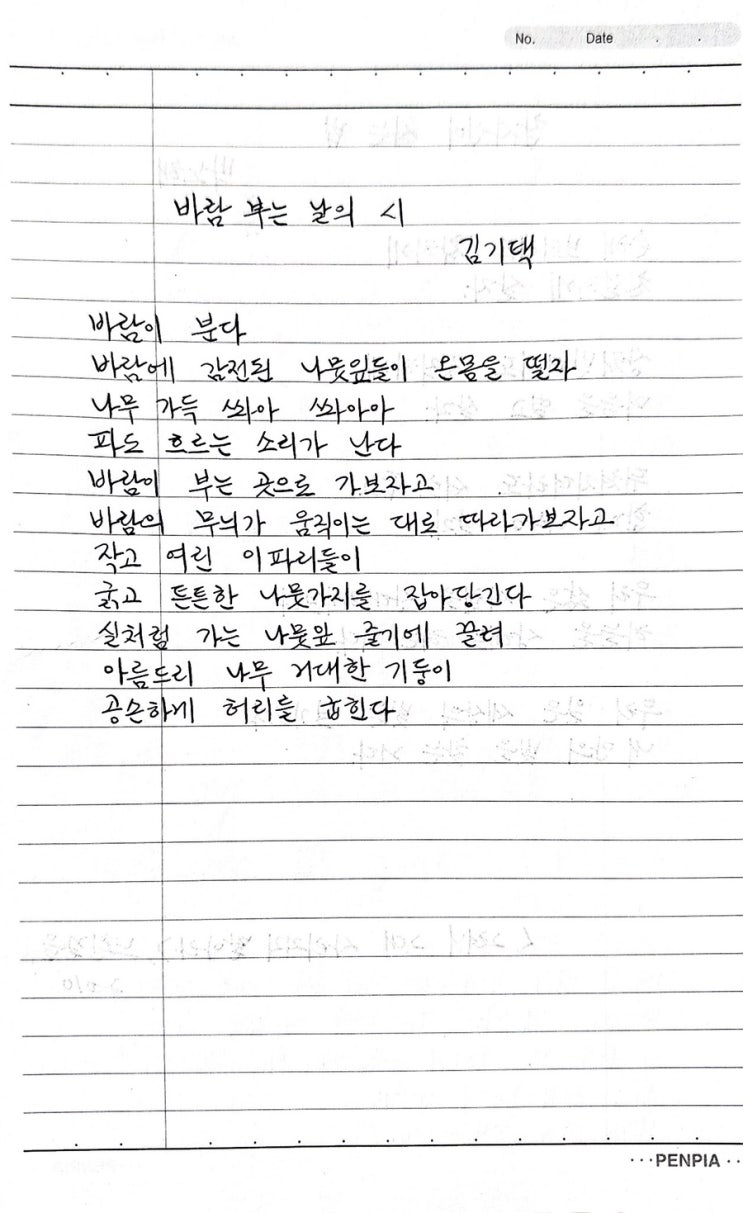 No. Date
바람 부는 날의 시
김기택
바람이 분다
바람에 감전된 나뭇잎들이 온몸을 떨자
나무 가득 쏴아 쏴아아
파도 흐르는 소리가 난다
바람이 부는 곳으로 가보자고
바람의 무늬가 움직이는 대로 따라가보자고
작고 여린 이파리들이
굵고 튼튼한 나뭇가지를 잡아당긴다
실처럼 가는 나뭇잎 줄기에 끌려
아름드리 나무 거대한 기둥이
공손하게 허리를 굽힌다
PENPIA